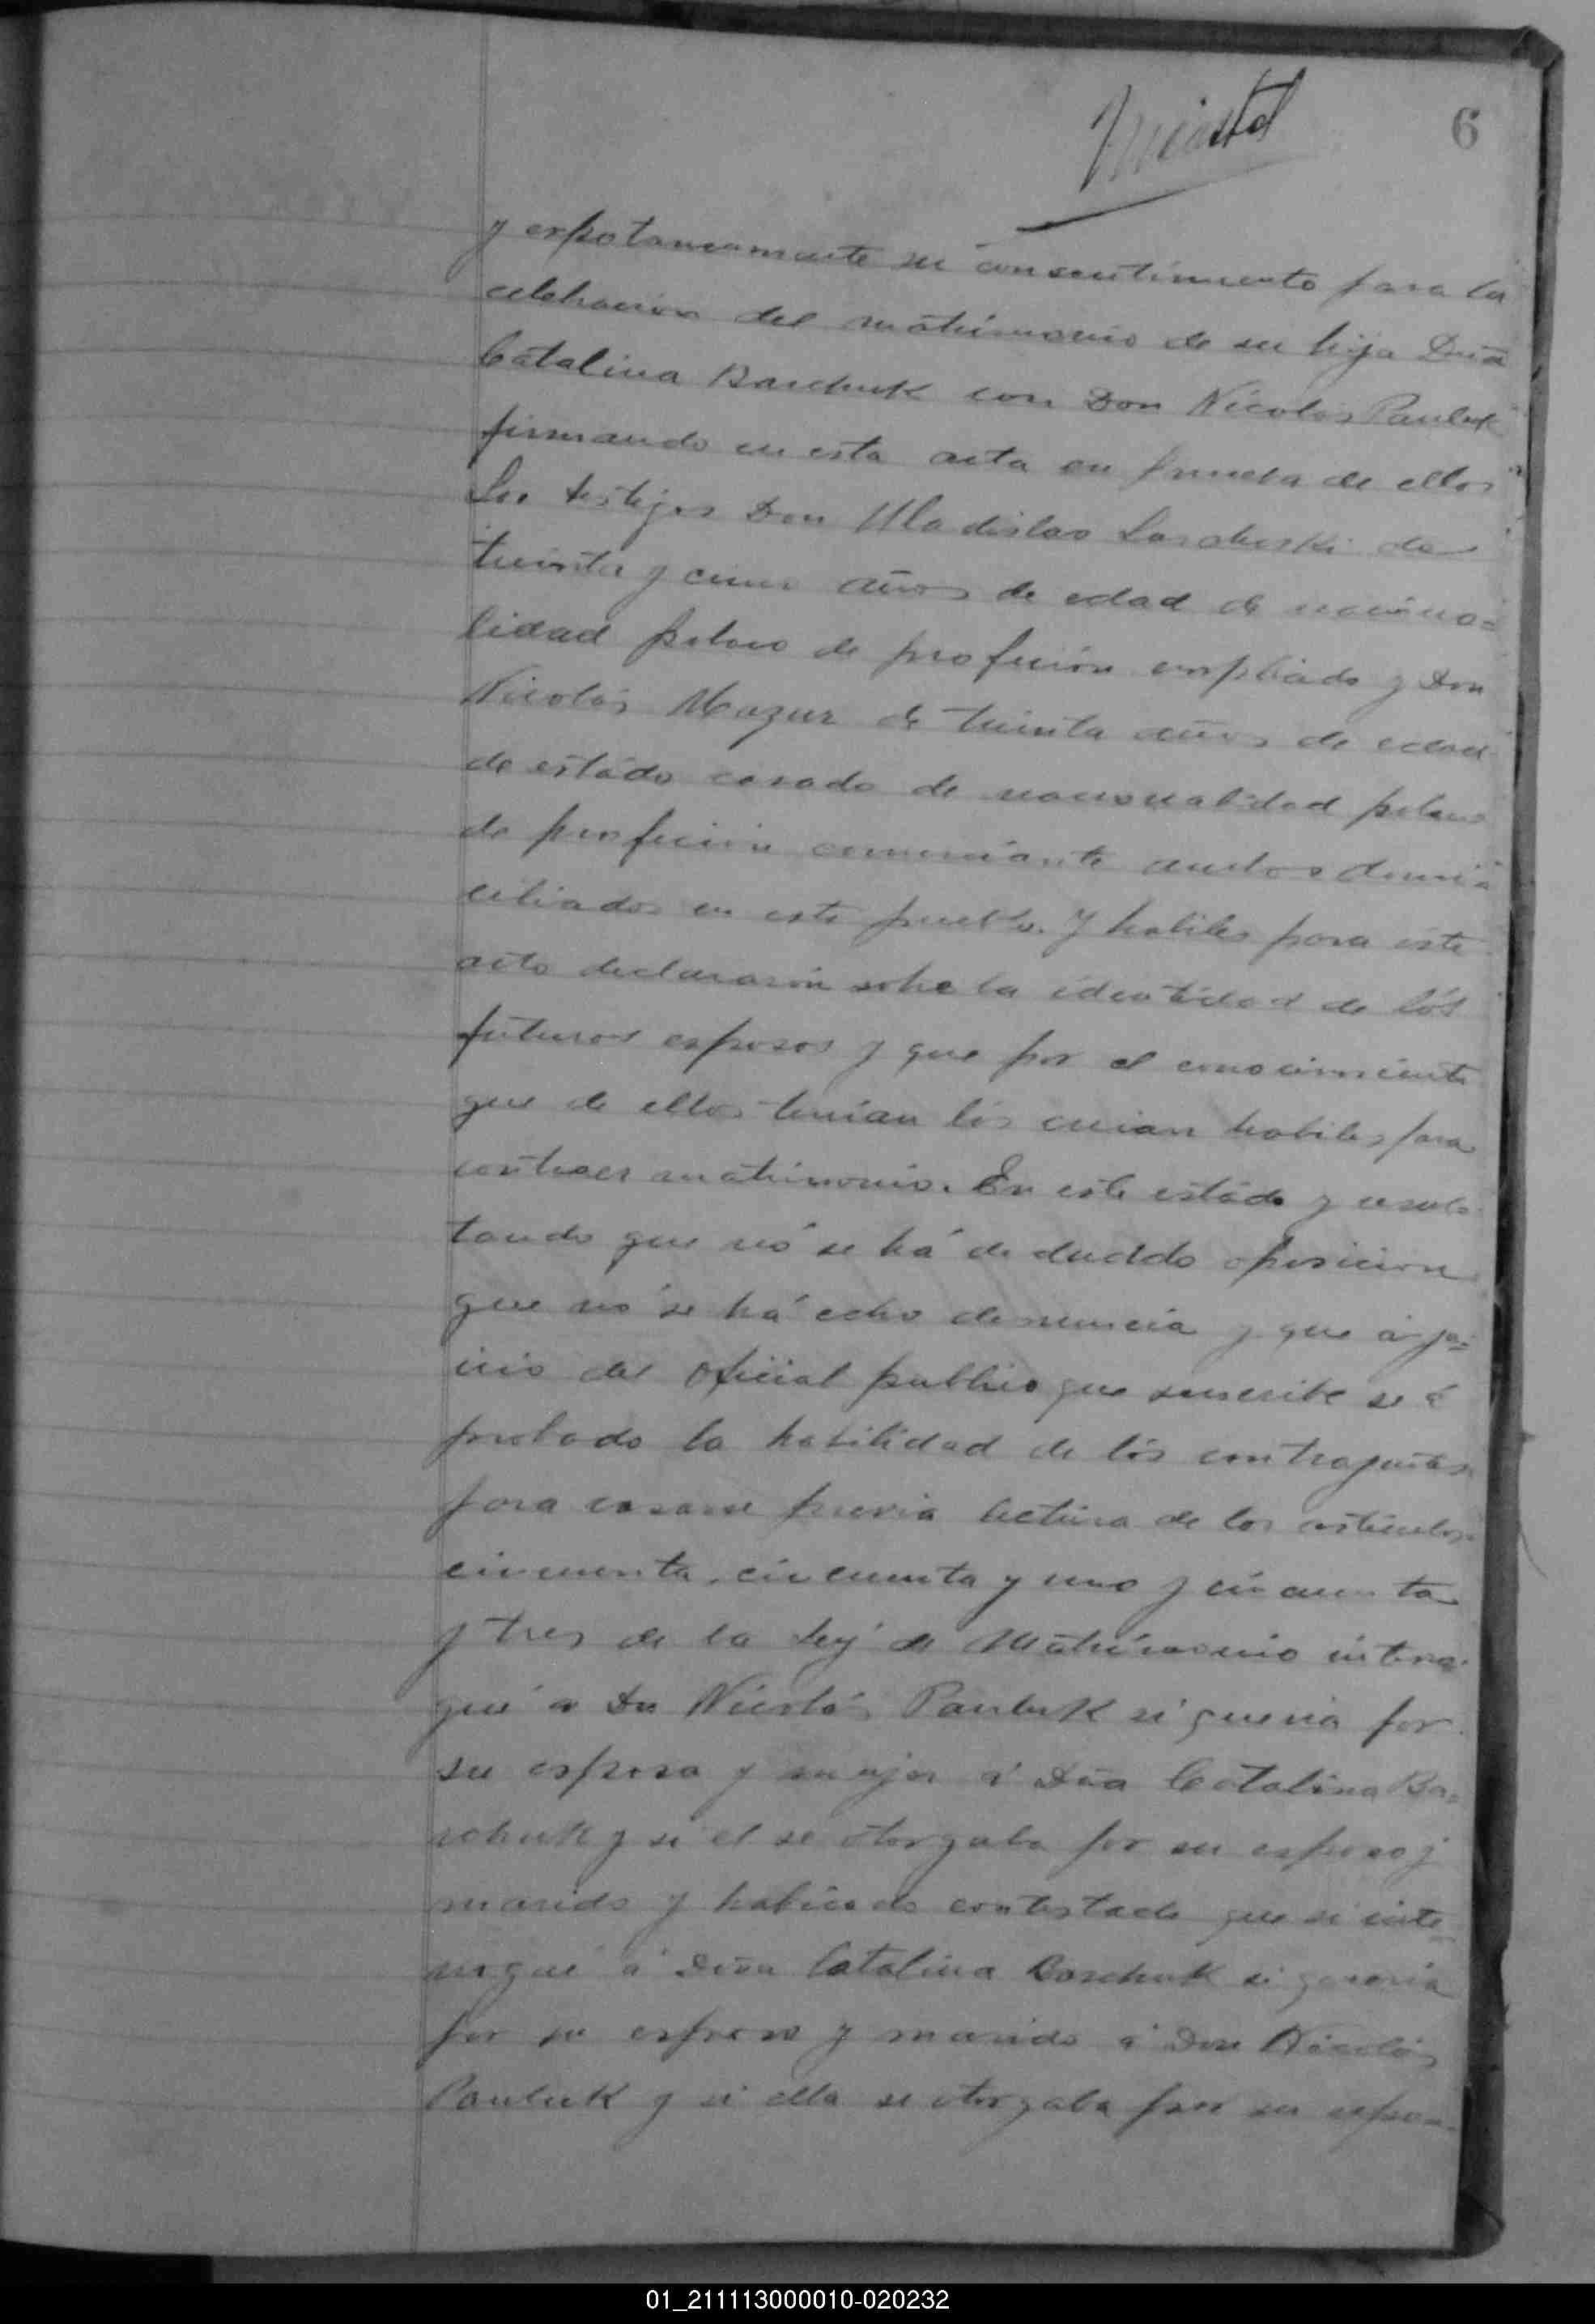 6
y expotaneamente su consentimiento para la
celebracion del matrimonio de su hija Duña
Catalina Baschuk con Don Nicolás Pauluk
firmando en esta acta en prueba de ellos
Los testigos Don Uladislao de
treinta y cinco años de edad de naciona=
lidad polaco de profeción empliado y Don
Nicolás Mazur de treinta años de edad
de estado casado de nacionalidad polaco
de profeción comerciante ambos domi=
ciliados en este pueblo. Y habiles para este
acto declararón sobre la identidad de lós
futuros esposos y que por el conocimiento
que de ellos tenían lós creian habiles para
contraer matrimonio. En este estado y resul=
tando que nó se há deducido oposicion
que nó se há echo denuncia y que á ju=
icio del oficial publico que suscribe se á
probado la habilidad de lós contrayentes
para casarse previa lectura de los articulos
cincuenta, cincuenta y uno y cincuenta
y tres de la Ley de Matrimonio interro=
gué a Dn Nicolás Pauluk si queria por
su esposa y mujer á Dña Catalina Ba=
schuk y si el se otorgaba por su esposo y
marido y habiendo contestado que si inte=
rrogué á Doña Catalina Baschuk si queria
por su esposo y marido á Don Nicolás
Pauluk y si ella se otorgaba por su espo=
01_211113000010-020232